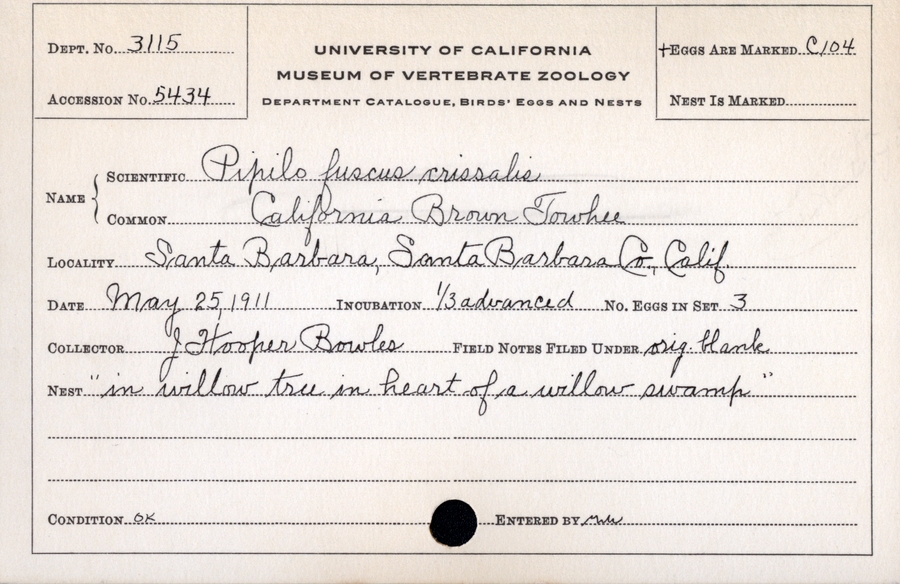 DEPT. NO. 3115
ACCESSION NO. 5434
UNIVERSITY OF CALIFORNIA
MUSEUM OF VERTEBRATE ZOOLOGY
DEPARTMENT CATALOGUE, BIRDS' EGGS AND NESTS
†EGGS ARE MARKED C/04
NEST IS MARKED
NAME
SCIENTIFIC Pipilo fuscus crissalis
COMMON California Brown Towhee
LOCALITY Santa Barbara, Santa Barbara Co., Calif.
DATE May 25, 1911 INCUBATION 1/3 advanced NO. EGGS IN SET 3
COLLECTOR J Hooper Bowles FIELD NOTES FILED UNDER orig. blank
NEST "in willow tree in heart of a willow swamp"
CONDITION OK ENTERED BY